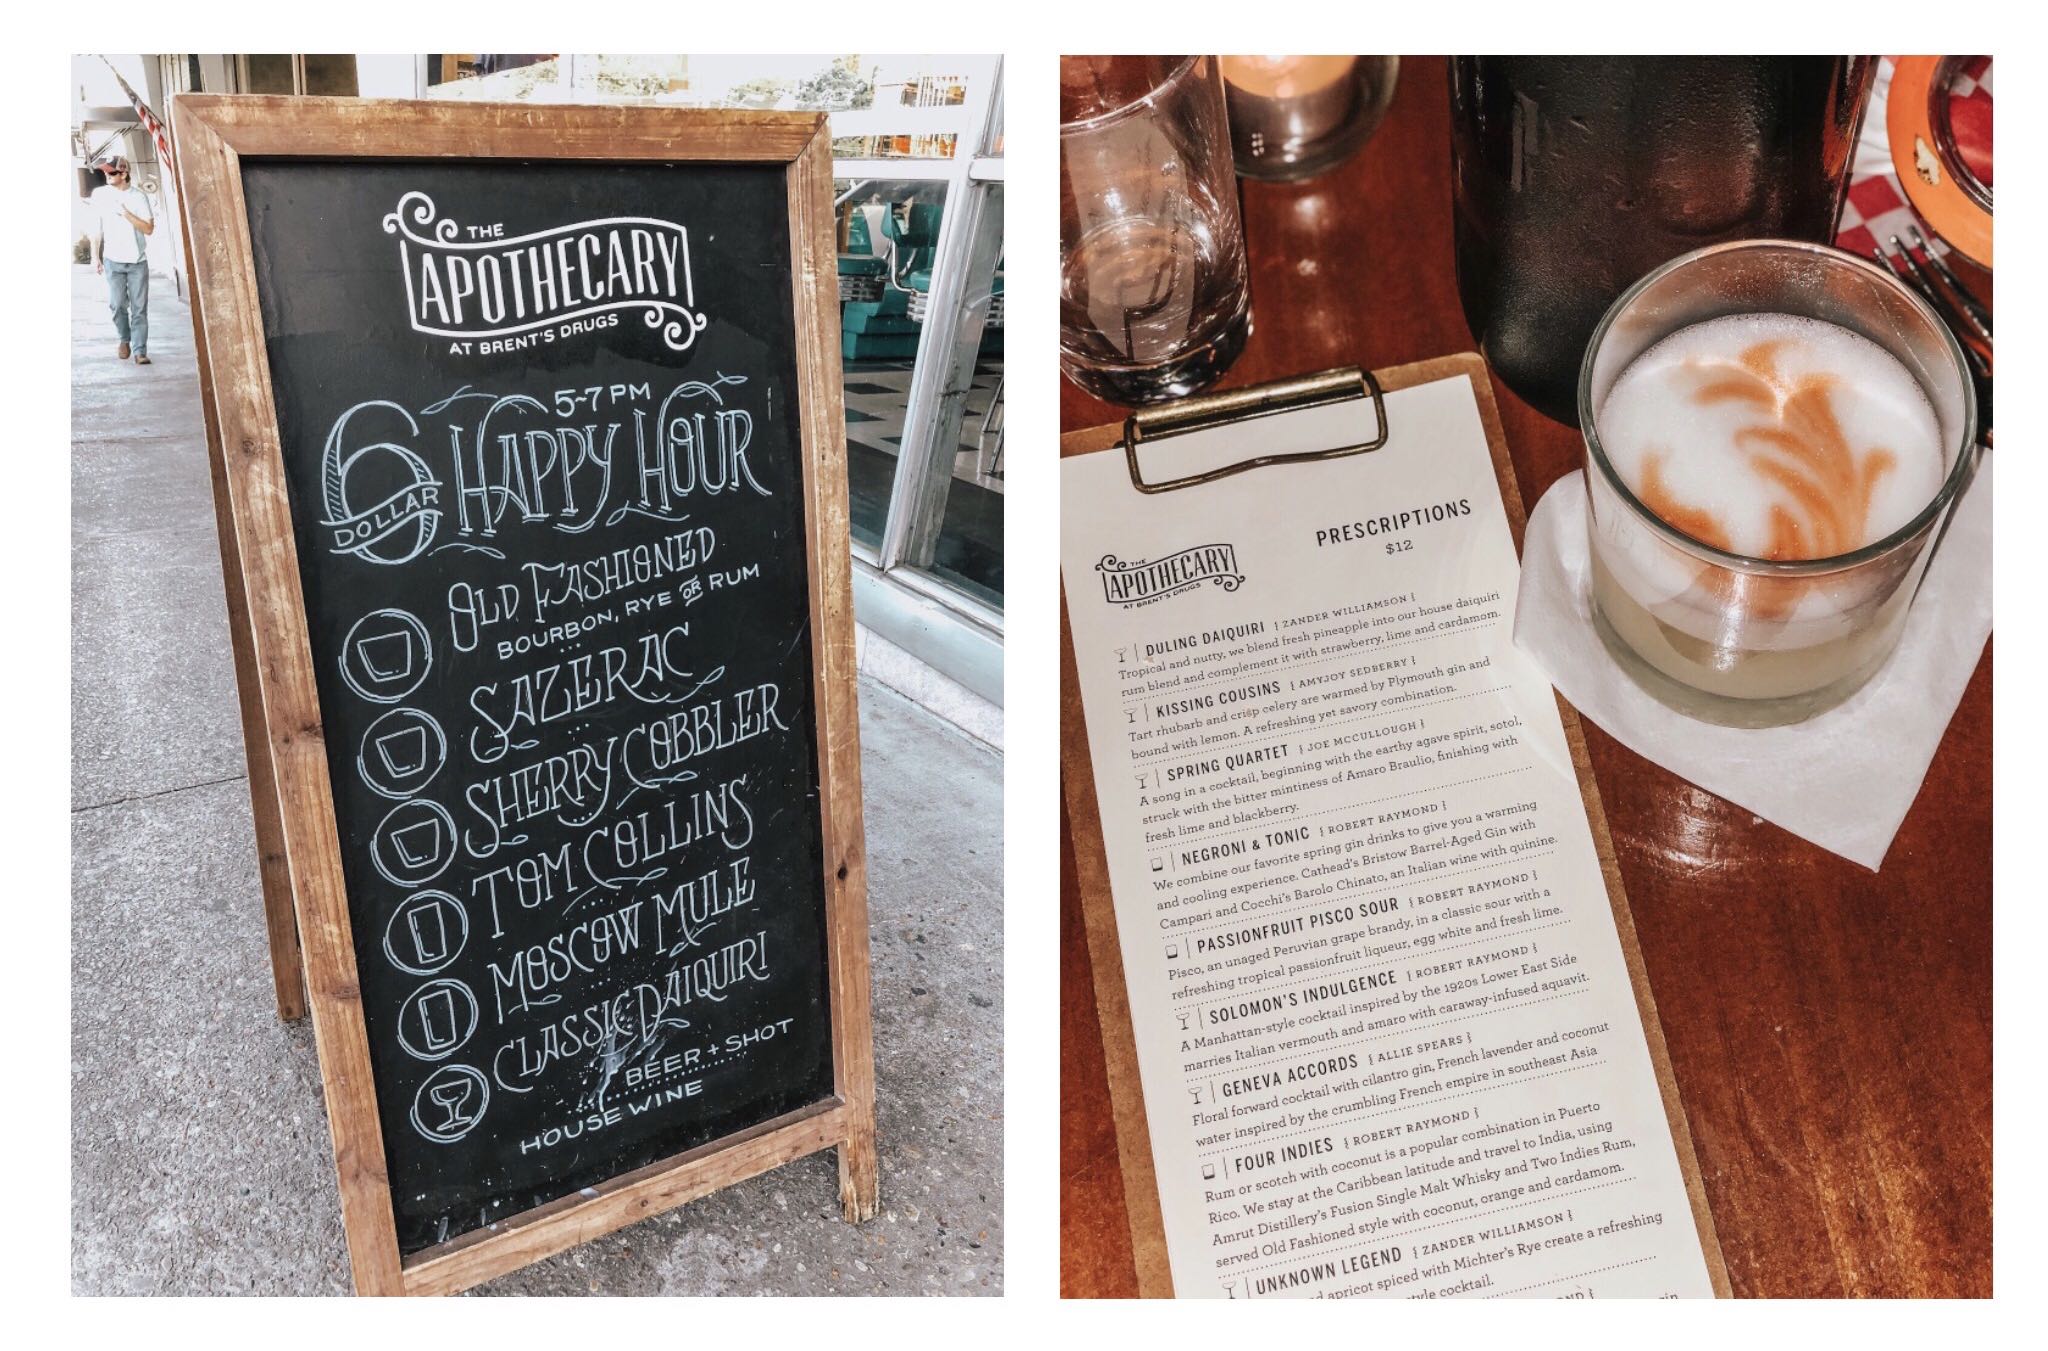 THE
APOTHECARY
AT BRENT'S DRUGS
5-7 PM
6 DOLLAR HAPPY HOUR
OLD FASHIONED
BOURBON, RYE OR RUM
SAZERAC
SHERRY COBBLER
TOM COLLINS
MOSCOW MULE
CLASSIC DAIQUIRI
BEER + SHOT
HOUSE WINE
PRESCRIPTIONS
$12
THE
APOTHECARY
AT BRENT'S DRUGS
DULING DAIQUIRI { ZANDER WILLIAMSON }
Tropical and nutty, we blend fresh pineapple into our house daiquiri
rum blend and complement it with strawberry, lime and cardamom.
KISSING COUSINS { AMYJOY SEDBERRY }
Tart rhubarb and crisp celery are warmed by Plymouth gin and
bound with lemon. A refreshing yet savory combination.
SPRING QUARTET { JOE MCCULLOUGH }
A song in a cocktail, beginning with the earthy agave spirit, sotol,
struck with the bitter mintiness of Amaro Braulio, finishing with
fresh lime and blackberry.
NEGRONI & TONIC { ROBERT RAYMOND }
We combine our favorite spring gin drinks to give you a warming
and cooling experience. Cathead's Bristow Barrel-Aged Gin with
Campari and Cocchi's Barolo Chinato, an Italian wine with quinine.
PASSIONFRUIT PISCO SOUR { ROBERT RAYMOND }
Pisco, an unaged Peruvian grape brandy, in a classic sour with a
refreshing tropical passionfruit liqueur, egg white and fresh lime.
SOLOMON'S INDULGENCE { ROBERT RAYMOND }
A Manhattan-style cocktail inspired by the 1920s Lower East Side
marries Italian vermouth and amaro with caraway-infused aquavit.
GENEVA ACCORDS { ALLIE SPEARS }
Floral forward cocktail with cilantro gin, French lavender and coconut
water inspired by the crumbling French empire in southeast Asia
FOUR INDIES { ROBERT RAYMOND }
Rum or scotch with coconut is a popular combination in Puerto
Rico. We stay at the Caribbean latitude and travel to India, using
Amrut Distillery's Fusion Single Malt Whisky and Two Indies Rum,
served Old Fashioned style with coconut, orange and cardamom.
UNKNOWN LEGEND { ZANDER WILLIAMSON }
apricot spiced with Michter's Rye create a refreshing
cocktail.